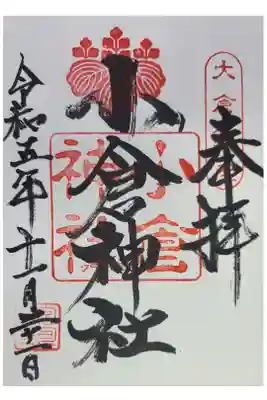 奉拝
小倉神社
令和五年十一月二十一日
小倉
神社